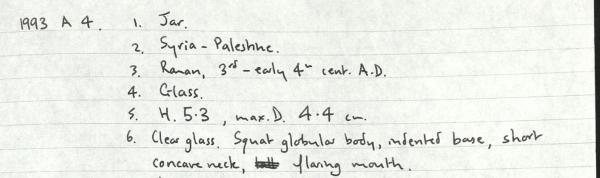 1993 A 4. 1. Jar.
2. Syria - Palestine.
3. Roman, 3rd - early 4th cent. A.D.
4. Glass.
5. H. 5.3, max. D. 4.4 cm.
6. Clear glass. Squat globular body, indented base, short
concave neck, flaring mouth.